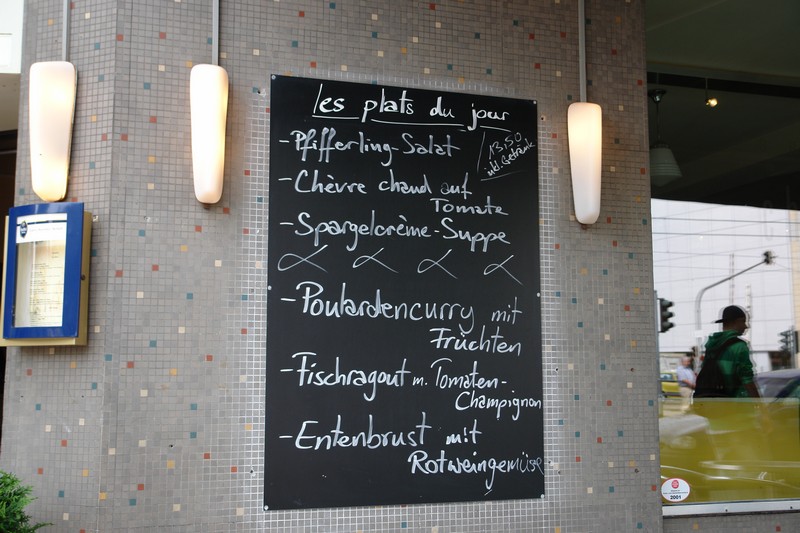 les plats du jour
- Pfifferling-Salat
13,50
inkl. Getränk
- Chèvre chaud auf
Tomate
- Spargelcrème-Suppe
- Poulardencurry mit
Früchten
- Fischragout m. Tomaten-
Champignon
- Entenbrust mit
Rotweingemüse
2001